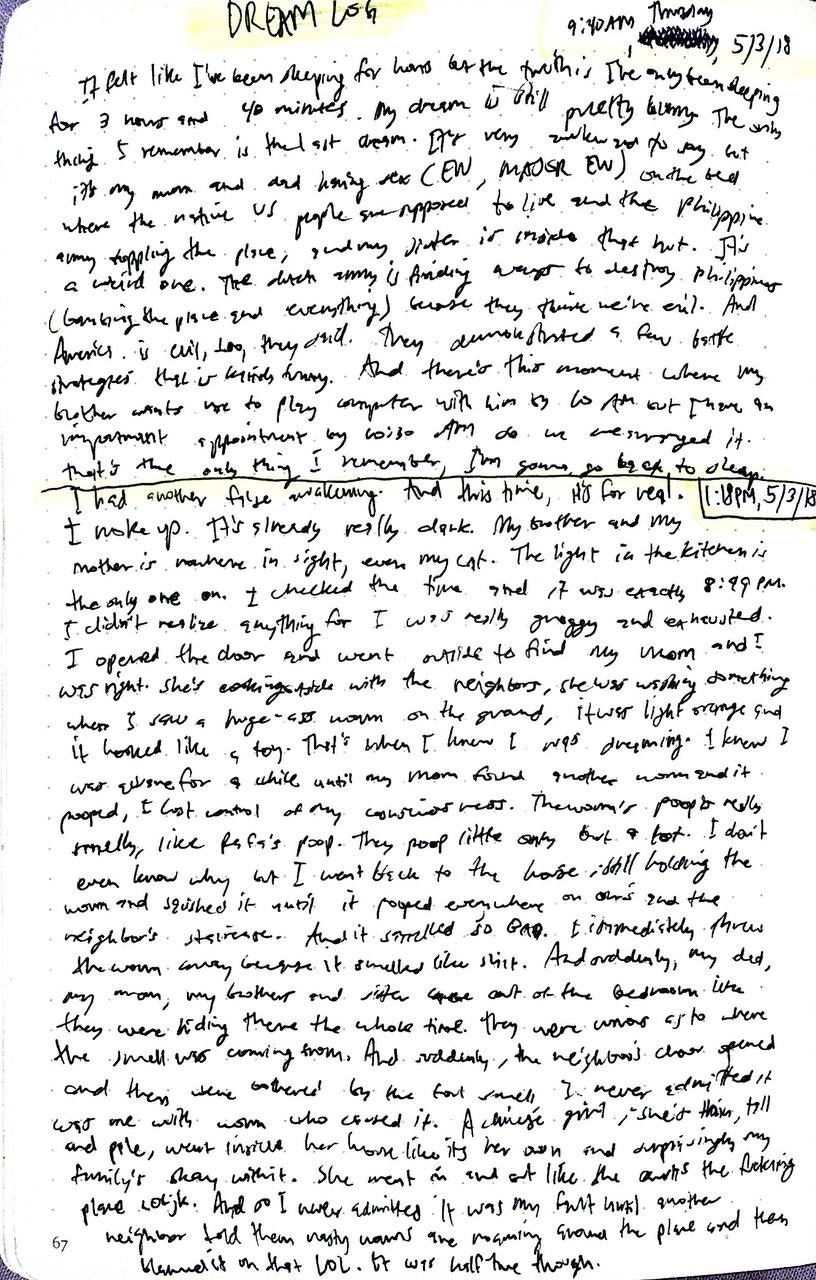 DREAM LOG
9:40AM Thursday, 5/3/18
It felt like I've been sleeping for hours but the truth is I've only been sleeping
for 3 hours and 40 minutes. My dream is still pretty blurry. The only
thing I remember is the last dream. It's very awkward to say but
it's my mom and dad having sex (EW, EW) on the bed
where the native US people are supposed to live and the Philippine
army toppling the place, and my sister is inside that hut. It's
a weird one. The army is finding ways to destroy Philippines
(bombing the place and everything) because they think we're evil. And
America is evil, too, they said. They demonstrated a few battle
strategies that is kinda funny. And there's this moment where my
brother wants me to play computer with him by 10 AM but I have an
important appointment by 10:30 AM so we it.
that's the only thing I remember, I'm gonna go back to sleep.
I had another false awakening. And this time, it's for real. 1:18PM, 5/3/18
I woke up. It's already really dark. My brother and my
mother is nowhere in sight, even my cat. The light in the kitchen is
the only one on. I checked the time and it was exactly 8:49 PM.
I didn't realize anything for I was really groggy and exhausted.
I opened the door and went outside to find my mom and I
was right. She's outside with the neighbors, she was washing something
when I saw a huge-ass worm on the ground, it was light orange and
it looked like a toy. That's when I knew I was dreaming. I knew I
was aware for a while until my mom found another worm and it
pooped, I lost control of my consciousness. The worm's poop is really
smelly, like poop. They poop little only but a lot. I don't
even know why but I went back to the house still holding the
worm and squished it until it pooped everywhere on ours and the
neighbor's staircase. And it smelled so BAD. I immediately threw
the worm away because it smelled like shit. And suddenly, my dad,
my mom, my brother and sister came out of the bedroom like
they were hiding there the whole time. They were curious as to where
the smell was coming from. And suddenly, the neighbor's door opened
and they were bothered by the foul smell. I never admitted it
was me with worm who caused it. A chinese girl, she's thin, tall
and pale, went inside her house like it's her own and surprisingly my
family's okay with it. She went in and out like she owns the fucking
place. And so I never admitted it was my fault until another
neighbor told them nasty worms are roaming around the place and they
blamed it on that LOL. It was half true though.
67